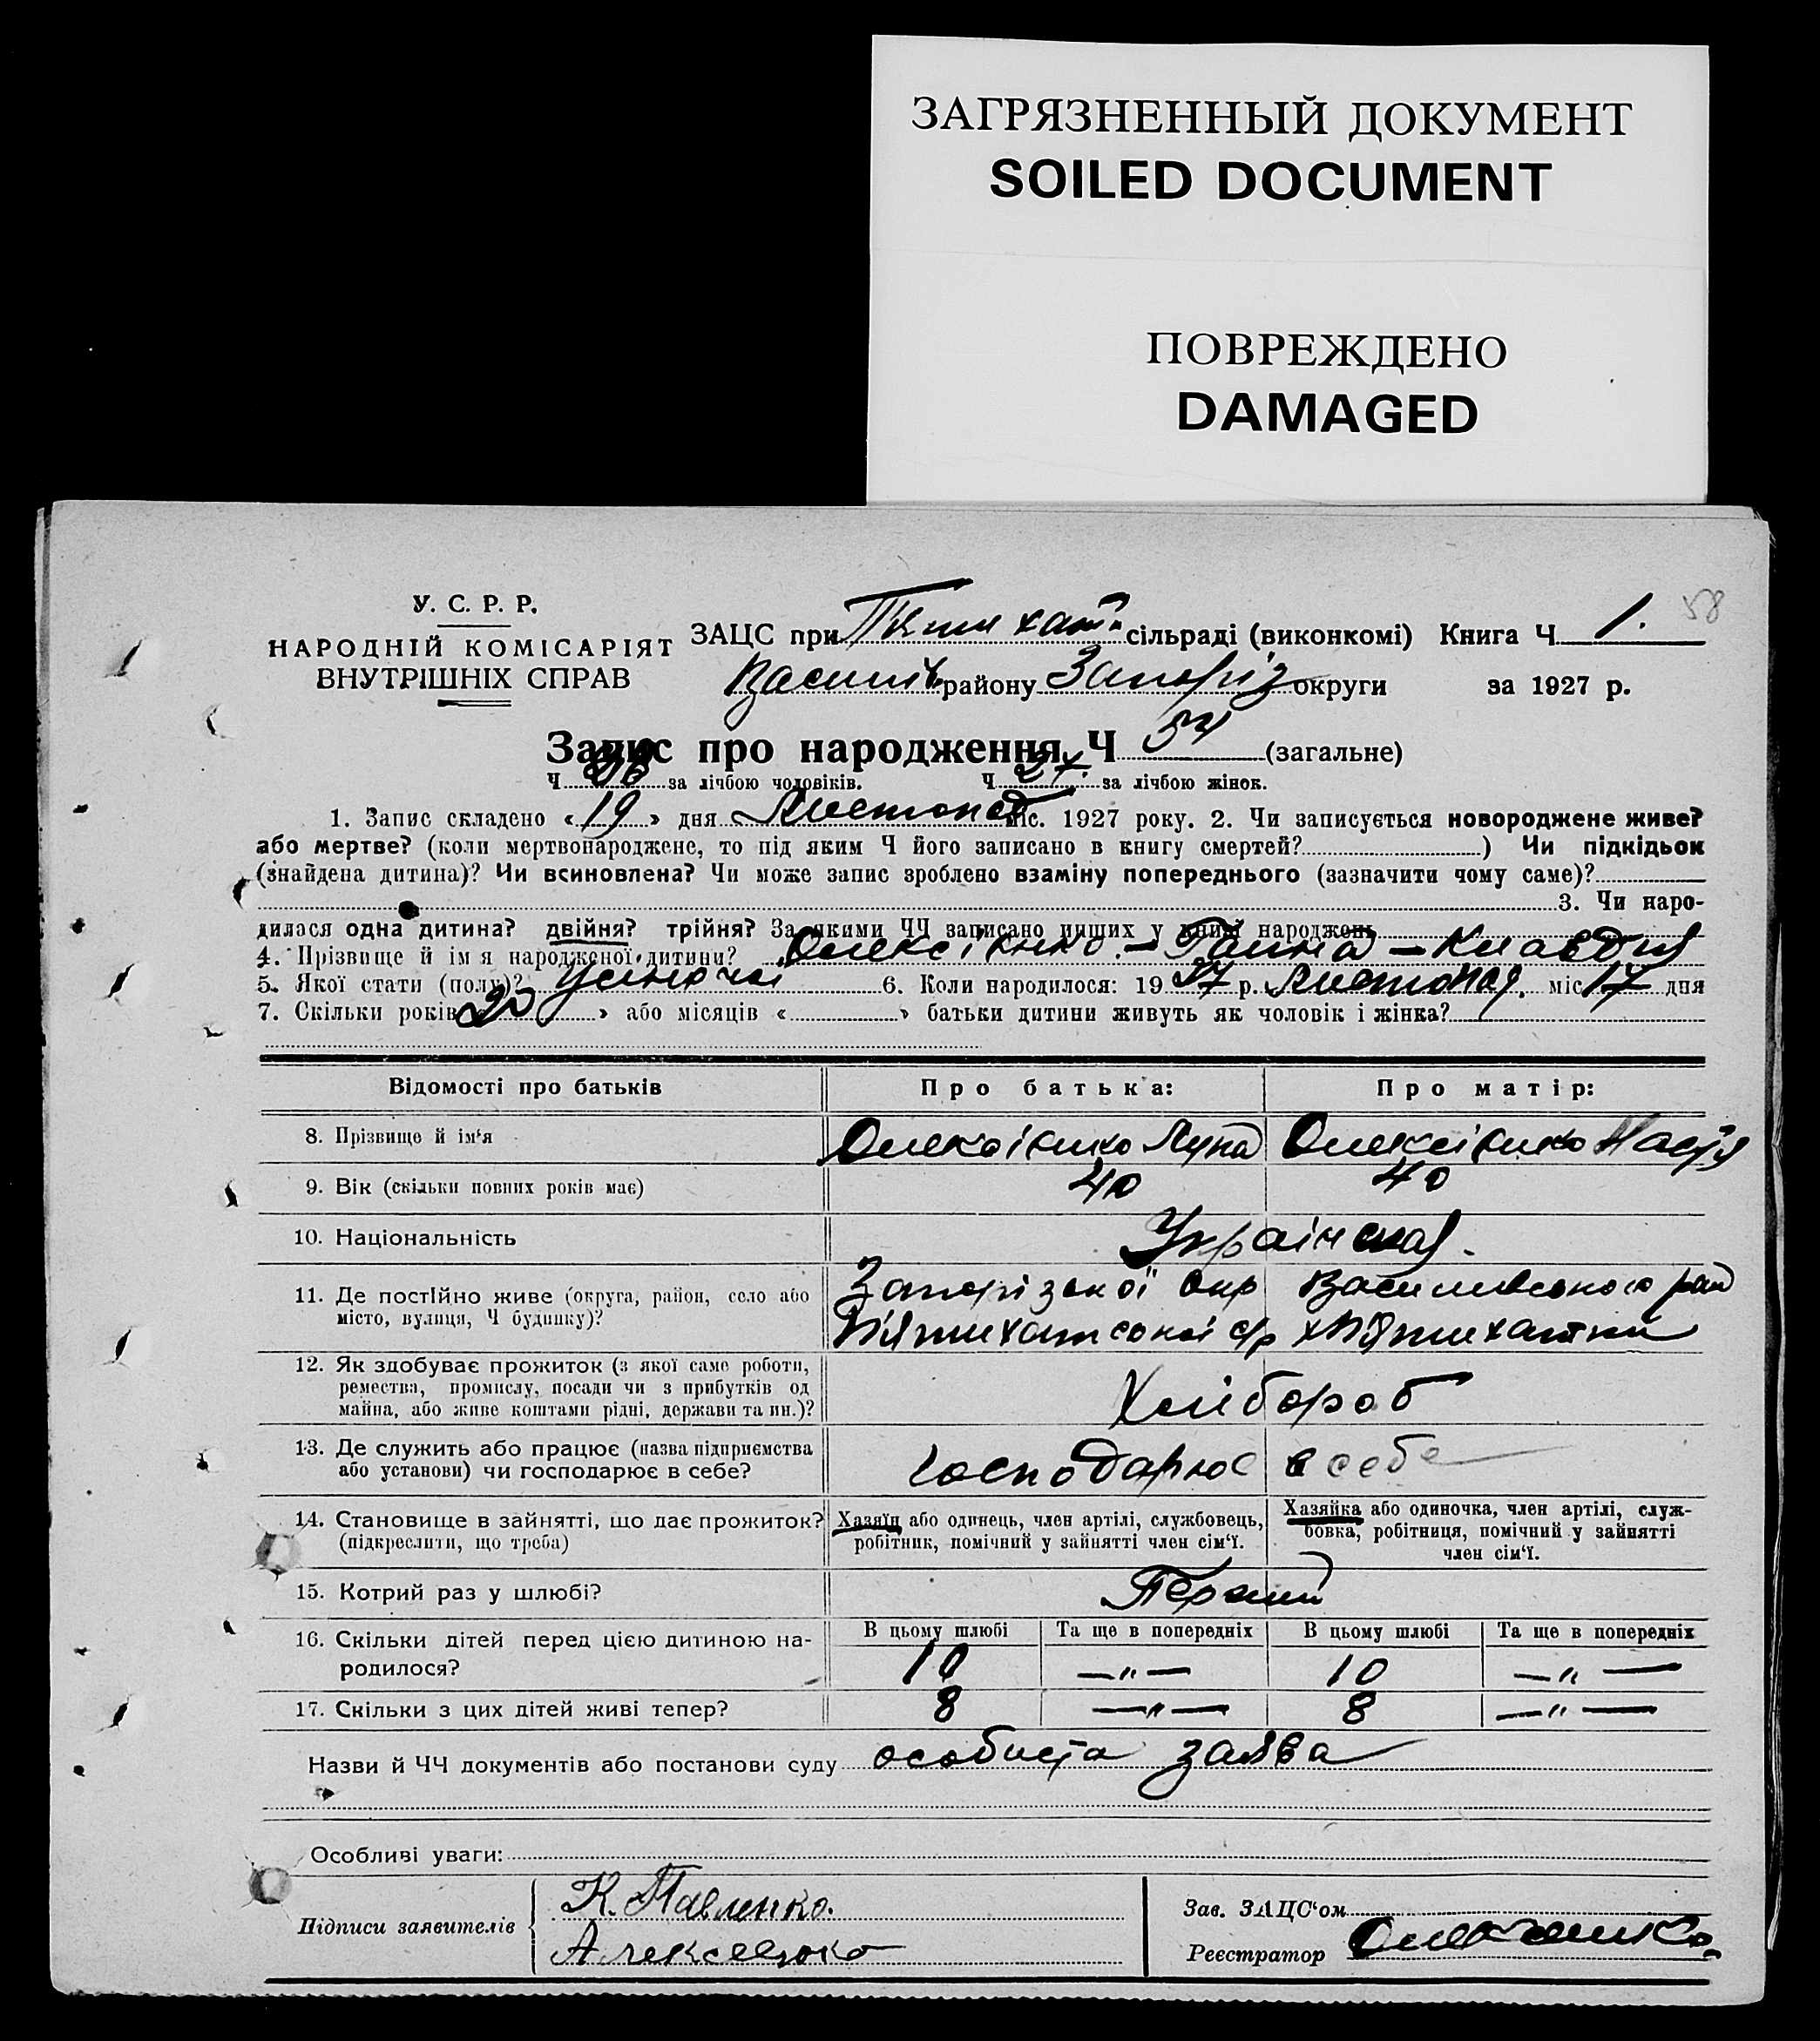 ЗАГРЯЗНЕННЫЙ ДОКУМЕНТ
SOILED DOCUMENT
ПОВРЕЖДЕНО
DAMAGED
58
У. С. Р. Р.
НАРОДНІЙ КОМІСАРІЯТ
ВНУТРІШНІХ СПРАВ
ЗАЦС при сільраді (виконкомі) Книга Ч 1.
Василів району Запоріз округи за 1927 р.
Запис про народження Ч 54 (загальне)
Ч за лічбою чоловіків. Ч 27. за лічбою жінок.
1. Запис складено « 19 » дня Листопад міс. 1927 року. 2. Чи записується новороджене живе?
або мертве? (коли мертвонароджене, то під яким Ч його записано в книгу смертей? ) Чи підкідьок
(знайдена дитина)? Чи всиновлена? Чи може запис зроблено взаміну попереднього (зазначити чому саме)?
3. Чи наро-
дилася одна дитина? двійня? трійня? За якими ЧЧ записано инших у книзі народжень
4. Прізвище й ім я народженої дитини? Олексієнко. – Ганна – Клавдия
5. Якої стати (полу)? жіночої 6. Коли народилося: 19 27 р. Листопад. міс 17 дня
7. Скільки років « 20 » або місяців « » батьки дитини живуть як чоловік і жінка?
Відомості про батьків Про батька: Про матір:
8. Прізвище й ім‘я Олексієнко Лупа Олексієнко Настя
9. Вік (скільки повних років має) 40 40
10. Національність Українська
11. Де постійно живе (округа, район, село або Запорізької окр Василивського рай
місто, вулиця, Ч будинку)? П'ятихатської с/р х П'ятихатки
12. Як здобуває прожиток (з якої саме роботи,
ремества, промислу, посади чи з прибутків од
майна, або живе коштами рідні, держави та ин.)? Хлібороб
13. Де служить або працює (назва підприємства
або установи) чи господарює в себе? господарює в себе
14. Становище в зайнятті, що дає прожиток? Хазяїн або одинець, член артілі, службовець, Хазяйка або одиночка, член артілі, служ-
(підкреслити, що треба) робітник, помічний у зайнятті член сім‘ї. бовка, робітниця, помічний у зайнятті
член сім‘ї.
15. Котрий раз у шлюбі? Перший
16. Скільки дітей перед цією дитиною на- В цьому шлюбі Та ще в попередніх В цьому шлюбі Та ще в попередніх
родилося? 10 —„— 10 —„—
17. Скільки з цих дітей живі тепер? 8 —„— 8 —„—
Назви й ЧЧ документів або постанови суду особиста заява
Особливі уваги:
Підписи заявителів К. Павленко. Зав. ЗАЦС‘ом
Алексеєнко Реєстратор